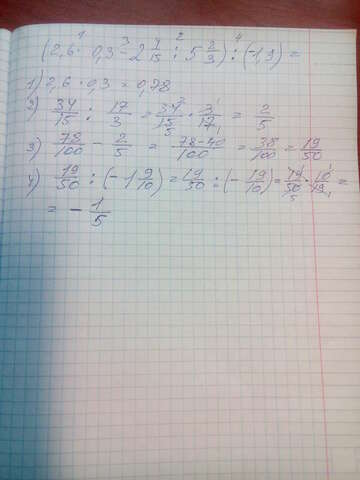 (2,6 · 0,3 - 2 4/15 : 5 2/3) : (-1,9) =
1) 2,6 · 0,3 = 0,78
2) 34/15 : 17/3 = 34/15 · 3/17 = 2/5
3) 78/100 - 2/5 = 78-40/100 = 38/100 = 19/50
4) 19/50 : (-1 9/10) = 19/50 : (- 19/10) = 19/50 · 10/19 =
= - 1/5